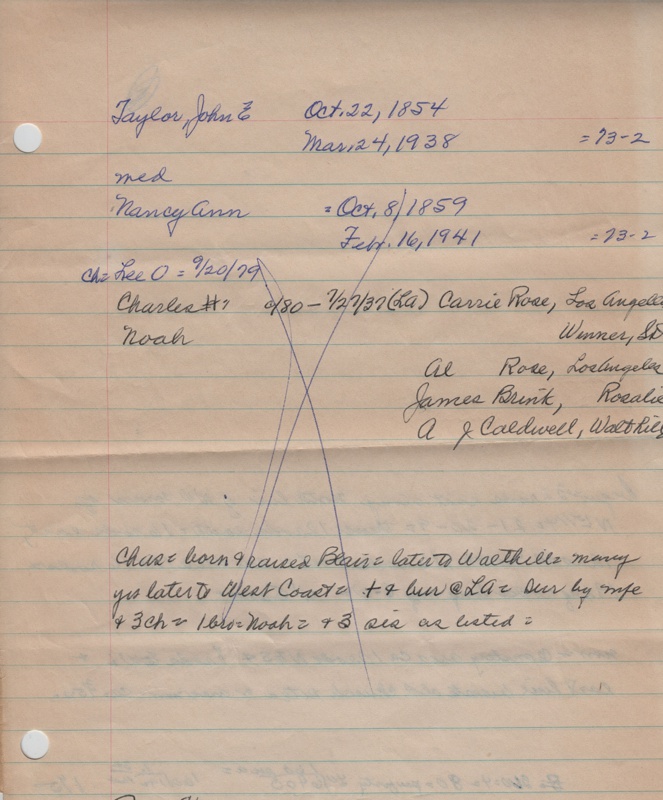 Taylor, John E Oct. 22, 1854
Mar. 24, 1938 = 73-2
med
Nancy Ann = Oct. 8, 1859
Feb. 16, 1941 = 73-2
ch = Lee O = 9/20/79
Charles H = /80 - 7/27/37 (LA) Carrie Rose, Los Angeles
Noah Winner, SD
Al Rose, Los Angeles
James Brink, Rosalie
A J Caldwell, Walthill
Chas = born & raised Blair = later to Walthill = many
yrs later to West Coast = + & bur @ LA = Sur by wife
& 3 ch = 1 bro = Noah = & 3 sis as listed =